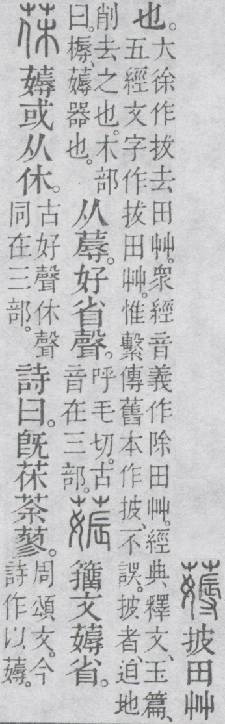 薅披田艸
也。大徐作拔去田艸。衆經音義作除田艸。經典釋文、玉篇、
五經文字作拔田艸。惟繫傳舊本作披、不誤。披者、迫地
削去之也。木部
曰。槈、薅器也。
从蓐。好省聲。
呼毛切。古
音在三部。
籒文薅省。
茠薅或从休。
古好聲休聲
同在三部。
詩曰。旣茠荼蓼。
周頌文。今
詩作以薅。